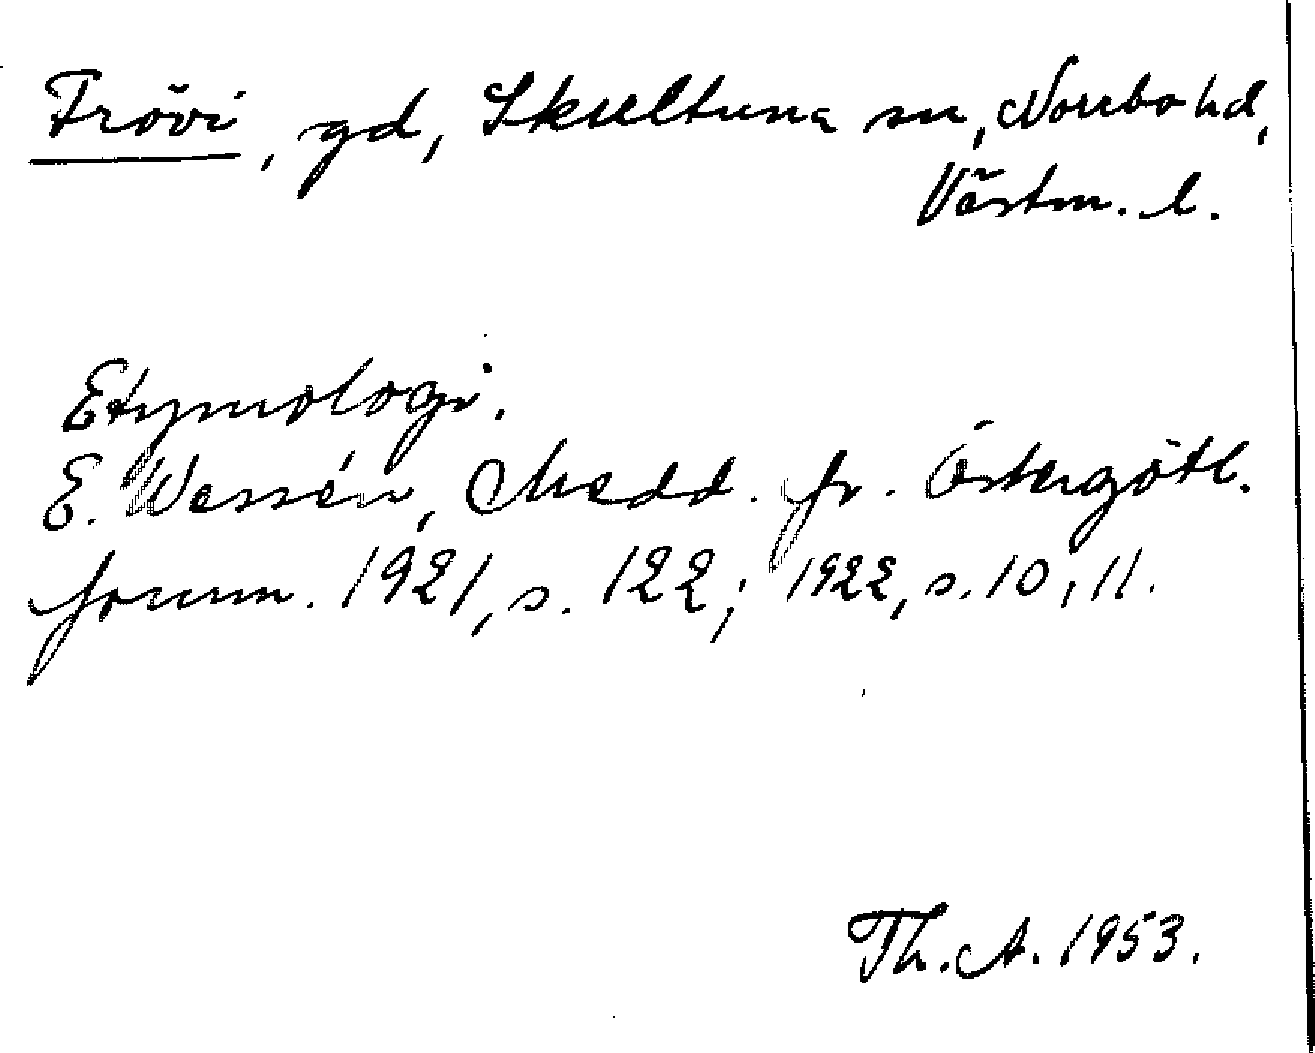 Frövi, gd, Skultuna sn, Norrbo hd,
Västm. l.
Etymologi.
E. Wessén, Medd. fr. Östergötl.
fornm. 1921, s. 122; 1922, s. 10, 11.
Th. A. 1953.